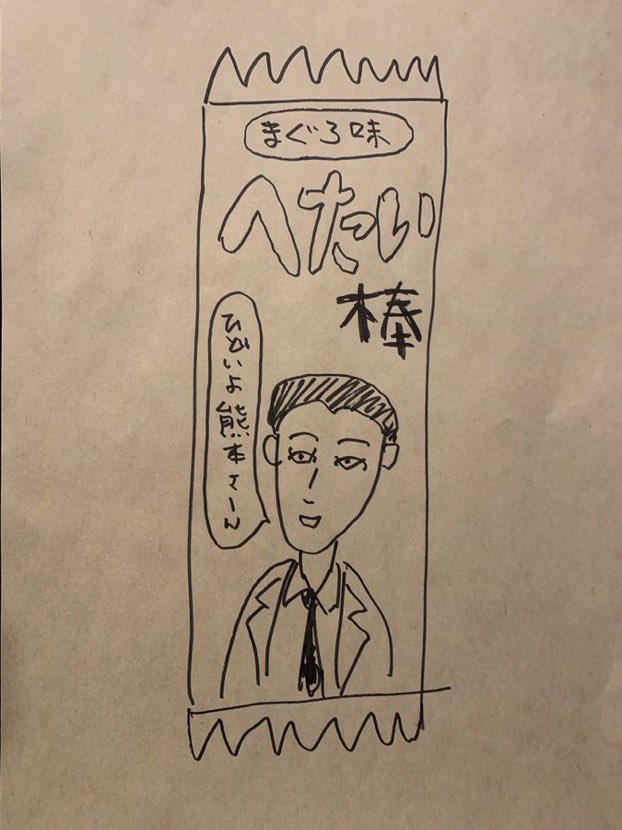 まぐろ味
へたい
棒
ひどいよ熊本さーん